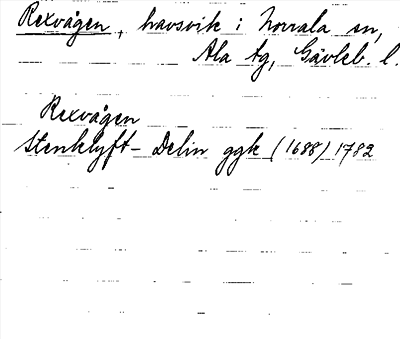 Rexvågen, havsvik i Norrala sn,
Ala tg, Gävleb. l.
Rexvågen
Stenklyft - Delin ggk (1688) 1782